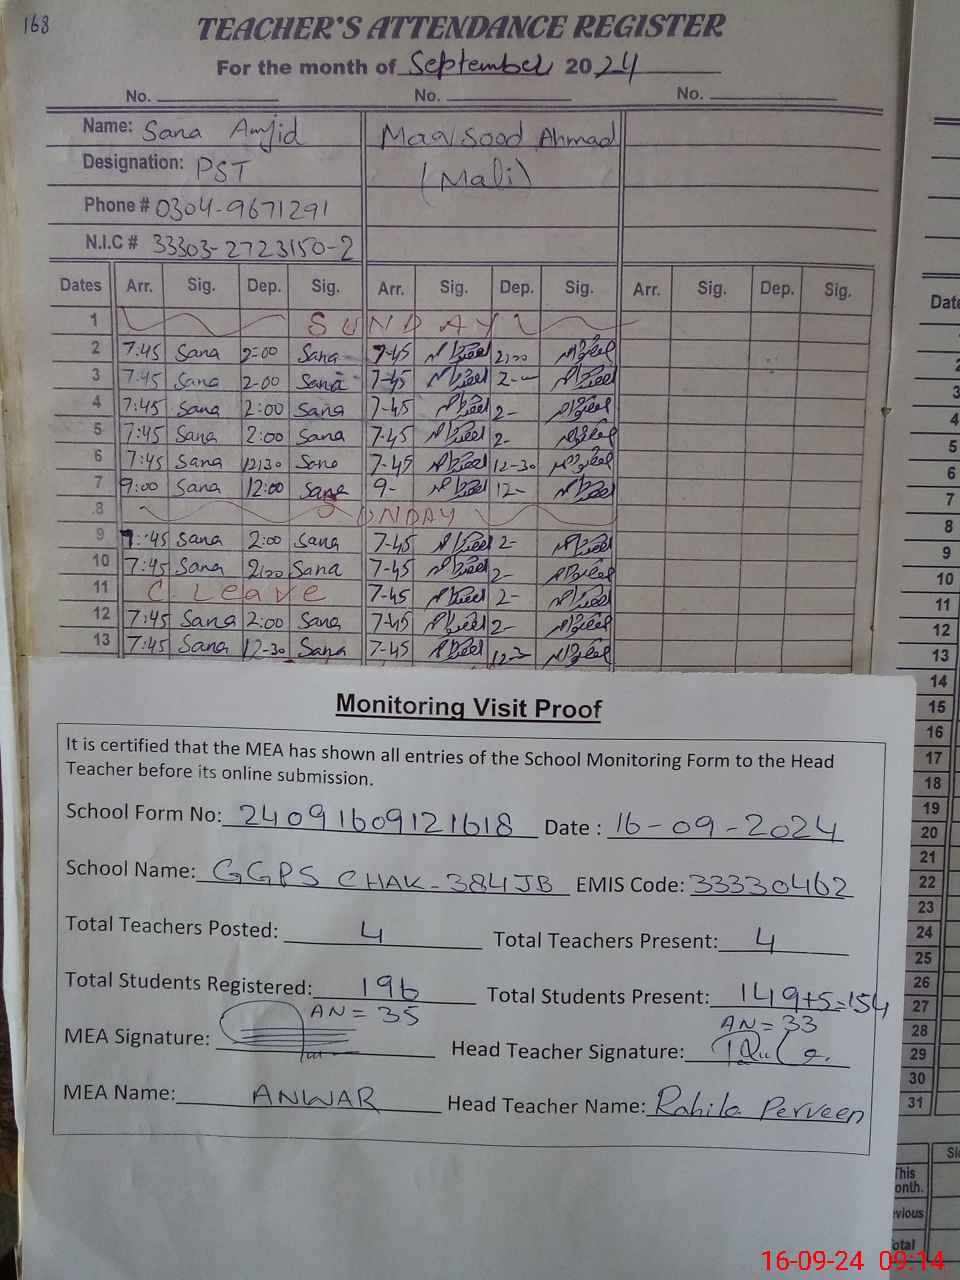 168
TEACHER'S ATTENDANCE REGISTER
For the month of September 2024
No. No. No.
Name: Sana Amjid Maqsood Ahmad
Designation: PST (Mali)
Phone # 0304-9671291
N.I.C # 33303-2723150-2
Dates Arr. Sig. Dep. Sig. Arr. Sig. Dep. Sig. Arr. Sig. Dep. Sig.
1 SUNDAY
2 7:45 Sana 2:00 Sana 7-45 2:00
3 7:45 Sana 2-00 Sana 7-45 2-
4 7:45 Sana 2:00 Sana 7-45 2-
5 7:45 Sana 2:00 Sana 7-45 2-
6 7:45 Sana 12:30 Sana 7-45 12-30
7 9:00 Sana 12:00 Sana 9- 12-
8 SUNDAY
9 7:45 Sana 2:00 Sana 7-45 2-
10 7:45 Sana 2:00 Sana 7-45 2-
11 C. Leave 7-45 2-
12 7:45 Sana 2:00 Sana 7-45 2-
13 7:45 Sana 12-30 Sana 7-45 12-3
Monitoring Visit Proof
It is certified that the MEA has shown all entries of the School Monitoring Form to the Head
Teacher before its online submission.
School Form No: 24091609121618 Date : 16-09-2024
School Name: GGPS CHAK-384JB EMIS Code: 33330462
Total Teachers Posted: 4 Total Teachers Present: 4
Total Students Registered: 196 Total Students Present: 149+5=154
AN = 35 AN = 33
MEA Signature: Head Teacher Signature:
MEA Name: ANWAR Head Teacher Name: Rahila Perveen
Date
1
2
3
4
5
6
7
8
9
10
11
12
13
14
15
16
17
18
19
20
21
22
23
24
25
26
27
28
29
30
31
This
onth.
evious
otal
16-09-24 09:14